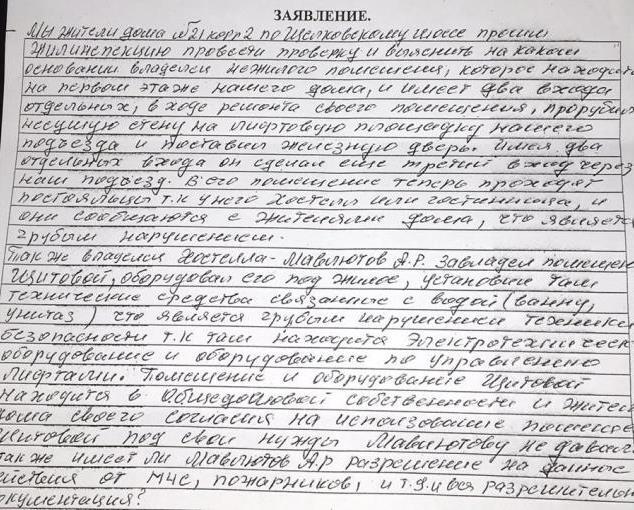 ЗАЯВЛЕНИЕ.
Мы жители дома №21 корп 2 по Щелковскому шоссе просим
жилинспекцию провести проверку и выяснить на каком
основании владелец нежилого помещения, которое находит
на первом этаже нашего дома, и имеет два входа
отдельных, в ходе ремонта своего помещения, прорубил
несущую стену на лифтовую площадку нашего
подъезда и поставил железную дверь. Имея два
отдельных входа он сделал ещё третий вход через
наш подъезд. В его помещение теперь проходят
постояльцы т.к у него хостел или гостиница, и
они сообщаются с жителями дома, что являетс
грубым нарушением.
Также владелец хостелла - Мавлютов А.Р. завладел помещен
Щитовой, оборудовал его под жилое, установил там
технические средства связанные с водой (ванну,
унитаз) что является грубым нарушением техники
безопасности т.к там находится Электротехническ
оборудование и оборудование по управлению
лифтами. Помещение и оборудование Щитовой
находится в Общедомовой собственности и жител
дома своего согласия на использование помещ
Щитовой под свои нужды Мавлютову не давал
также имеет ли Мавлютов А.Р разрешение на данные
ействия от МЧС, пожарников, и т.д и вся разрешительн
окументация?